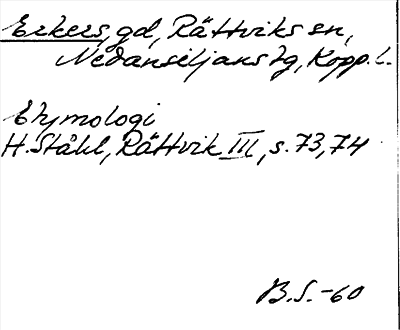 Erkers, gd, Rättviks sn,
Nedansiljans tg, Kopp. l.
Etymologi
H. Ståhl, Rättvik III, s. 73, 74
B.S. -60